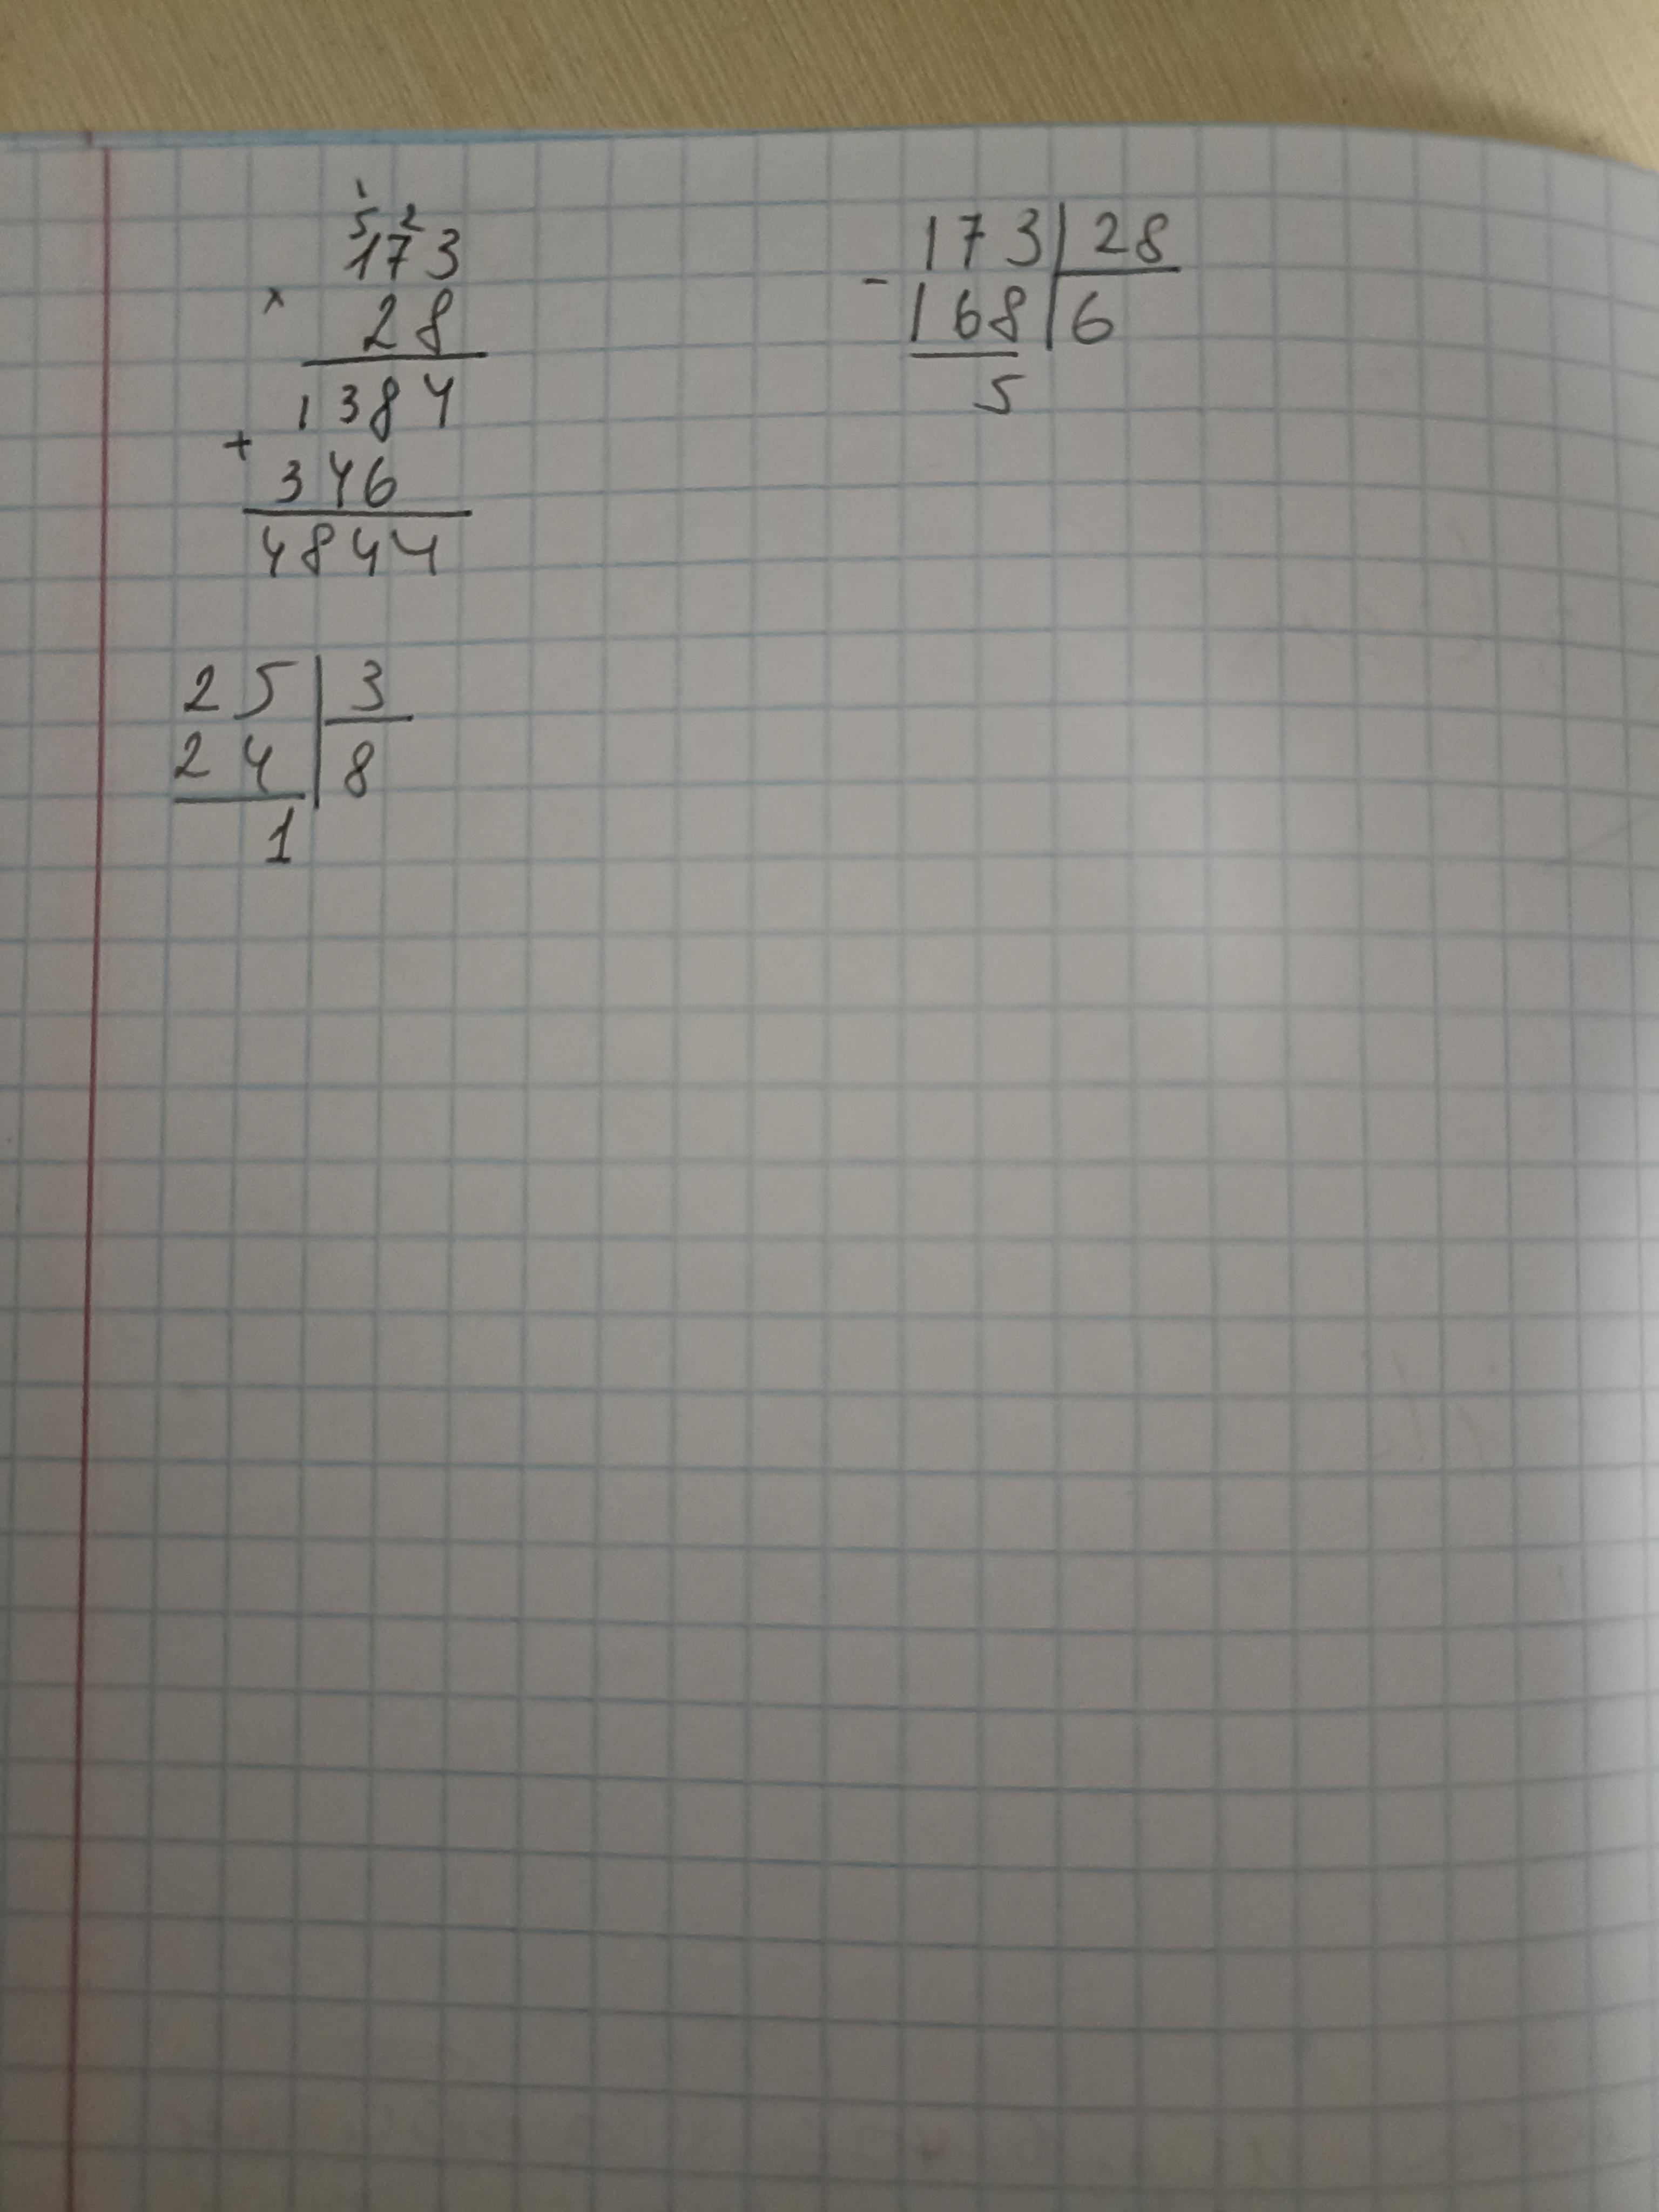 1
5 2
173
× 28
1384
+ 346
4844
173 28
- 168 6
5
25 3
24 8
1